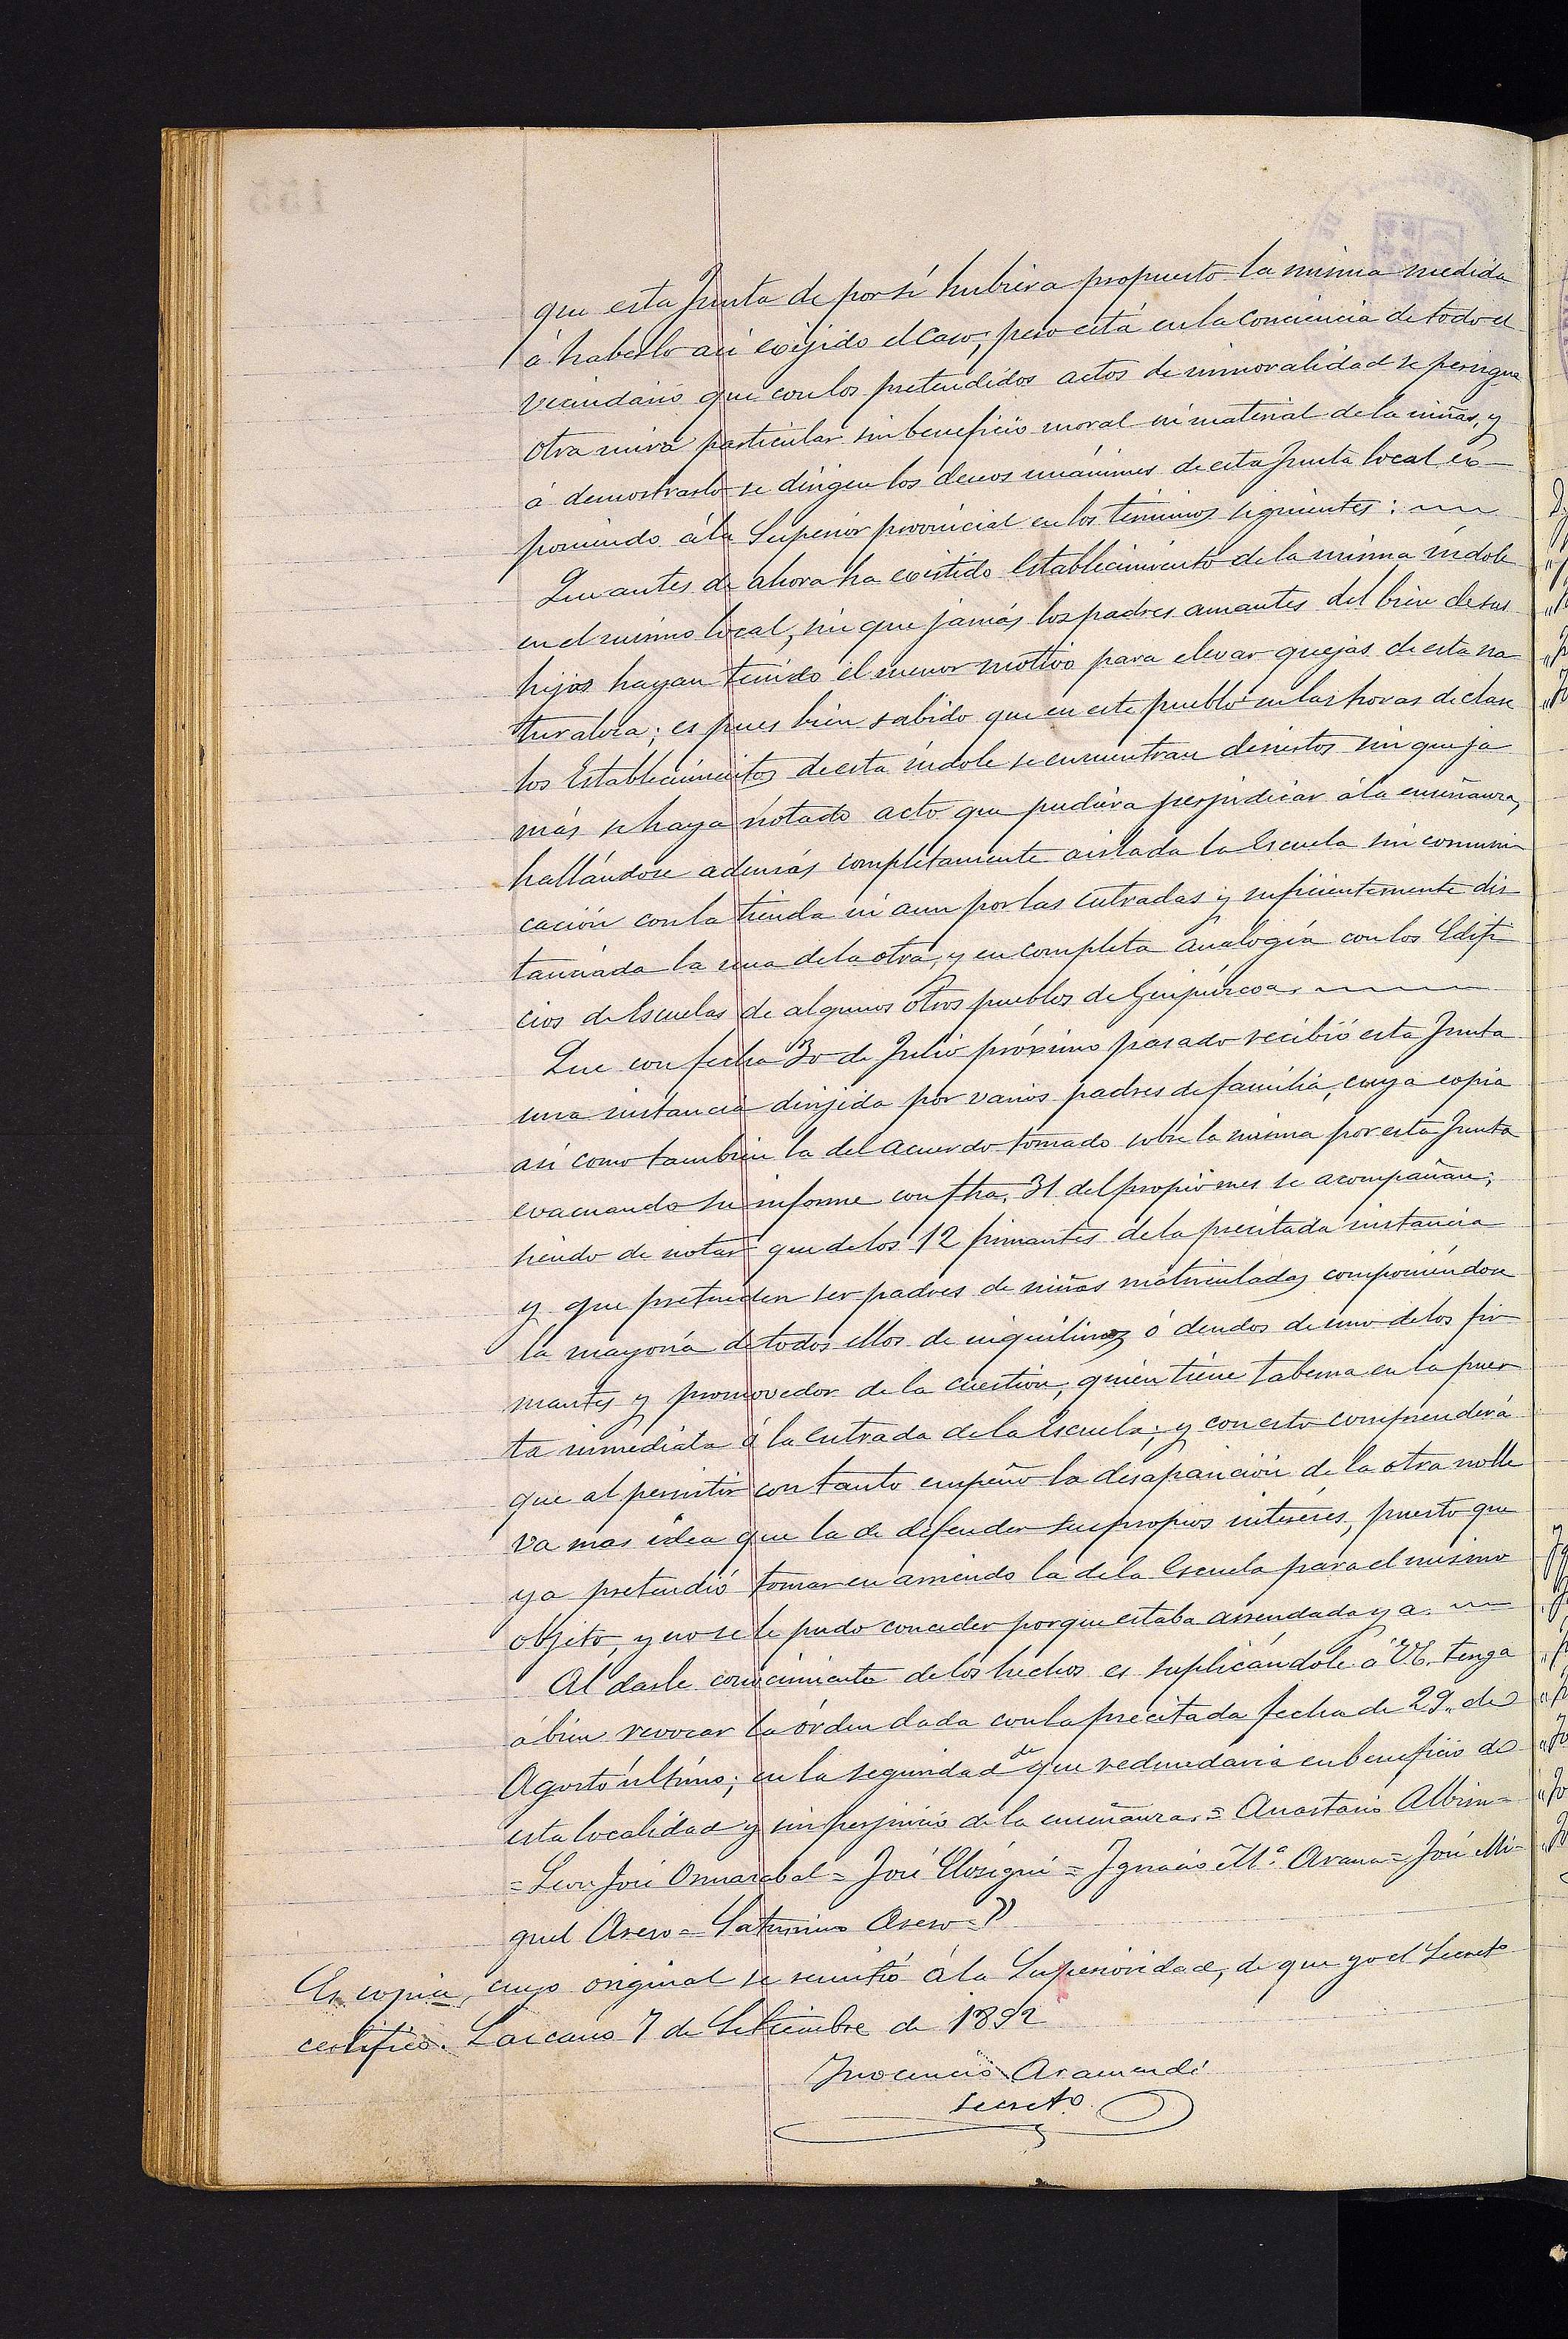 que esta Junta de por sí hubiera propuesto la misma medida
á haberlo así exijido el caso; pero está en la conciencia de todo el
vecindario que con los pretendidos actos de inmoralidad se persigue
otra mira particular sin beneficio moral ni material de la niñas, y
á demostrarlo se dirigen los deseos unánimes de esta Junta local ex-
poniendo á la Superior provincial en los términos siguientes:
Que antes de ahora ha existido Establecimiento de la misma índole
en el mismo local, sin que jamás los padres amantes del bien de sus
hijos hayan tenido el menor motivo para elevar quejas de esta na
turaleza; es pues bien sabido que en este pueblo en las horas de clase
los Establecimientos de esta índole se encuentran desiertos sin que ja
más se haya notado acto que pudiera perjudicar á la enseñanza,
hallándose además completamente aislada la Escuela sin comuni
cación con la tienda ni aun por las entradas y suficientemente dis
tanciada la una de la otra, y en completa analogía con los Edifi
cios de Escuelas de algunos otros pueblos de Guipúzcoa.
Que con fecha 30 de Julio próximo pasado recibió esta Junta
una instancia dirijida por varios padres de familia, cuya copia
así como tambien la del acuerdo tomado sobre la misma por esta Junta
evacuando su informe con fha. 31 del propio mes se acompañan;
siendo de notar que de los 12 firmantes de la precitada instancia
y que pretenden ser padres de niñas matriculadas componiéndose
la mayoría de todos ellos de inquilinos ó deudos de uno de los fir
mantes y promovedor de la cuestion, quien tiene taberna en la puer
ta inmediata á la entrada de la Escuela; y con esto comprenderá
que al permitir con tanto empeño la desaparición de la otra no lle
va mas idea que la de defender sus propios intereses, puesto que
ya pretendió tomar en arriendo la de la Escuela para el mismo
objeto, y no se le pudo conceder porque estaba arrendada ya.
Al darle conocimiento de los hechos es suplicándole á VE. tenga
á bien revocar la órden dada con la precitada fecha de 29 de
Agosto último; en la seguridad de que redundaria en beneficio de
esta localidad y sin perjuicio de la enseñanza. = Anastasio Albisu =
= Leon José Ormazabal = José Elosegui = Ignacio Mª. Arana = José Mi-
guel Aseso = Saturnino Aseso = "
Es copia, cuyo original se remitió á la Superioridad, de que yo el Secretº
certifico. Lazcano 7 de Setiembre de 1892
Inocencio Aramendi
Secretº
155